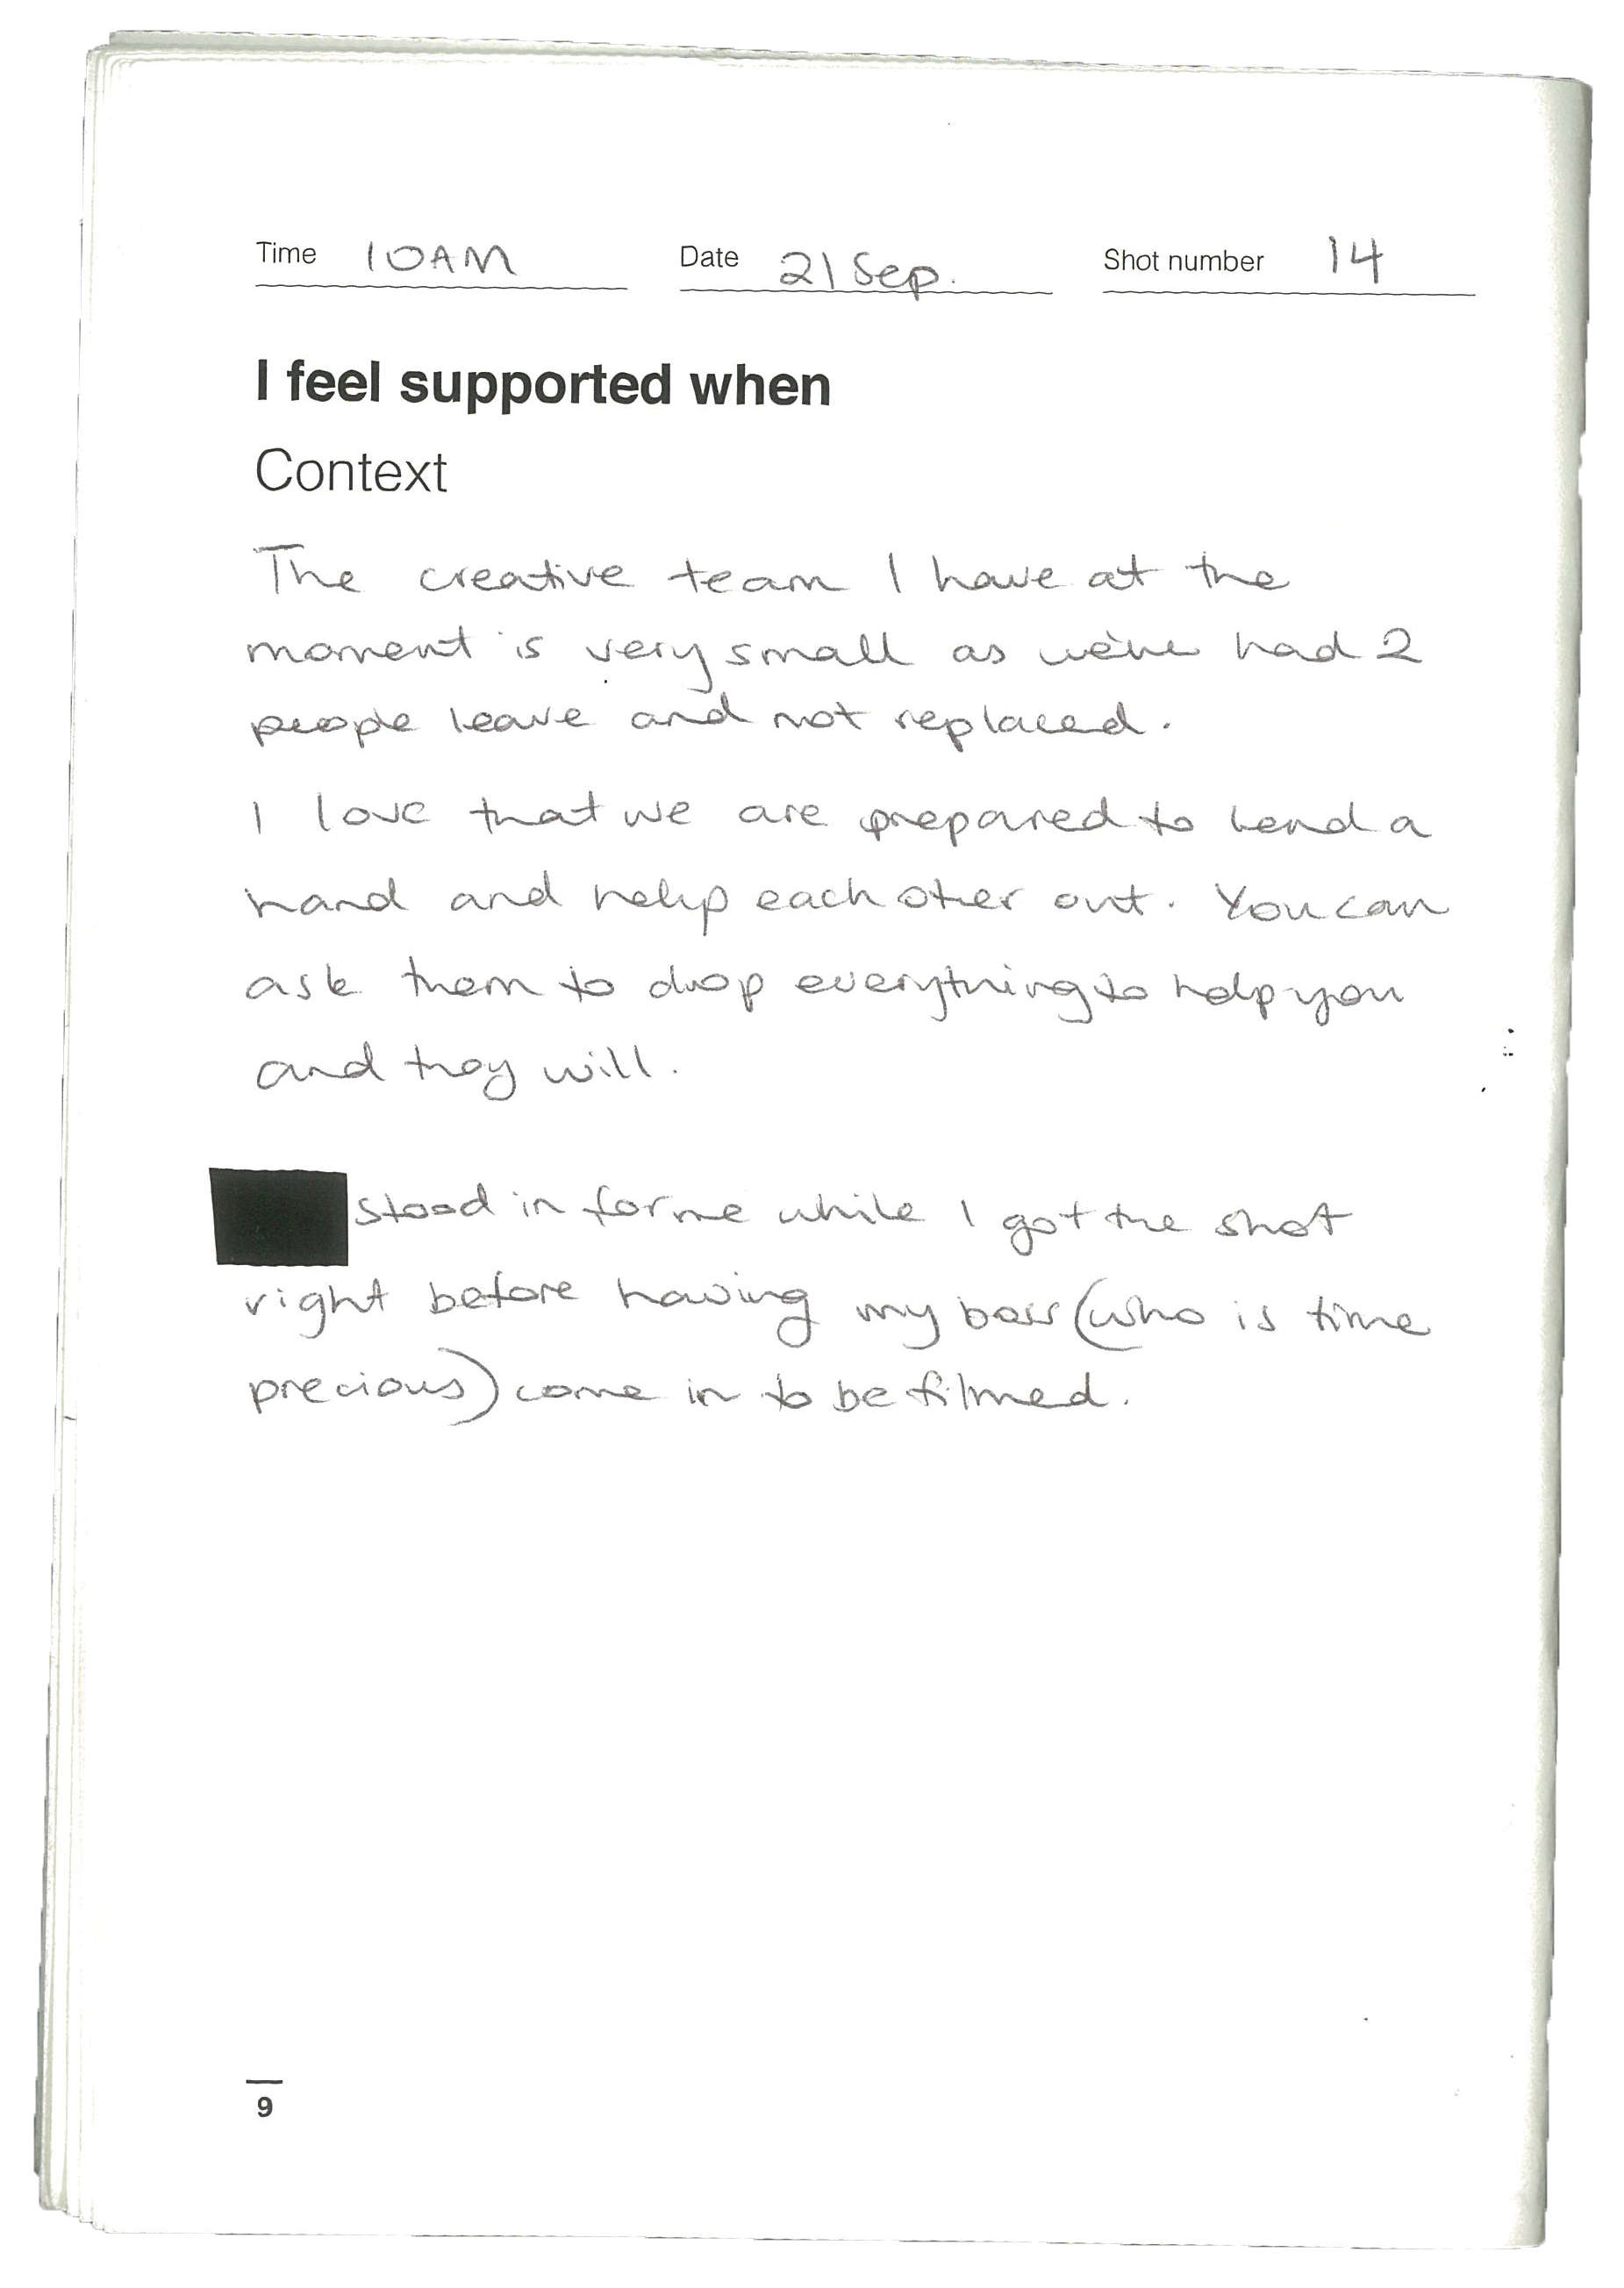 Time 10AM Date 21 Sep. Shot number 14
I feel supported when
Context
The creative team I have at the
moment is very small as we've had 2
people leave and not replaced.
I love that we are prepared to lend a
hand and help each other out. You can
ask them to drop everything to help you
and they will.
stood in for me while I got the shot
right before having my boss (who is time
precious) come in to be filmed.
9